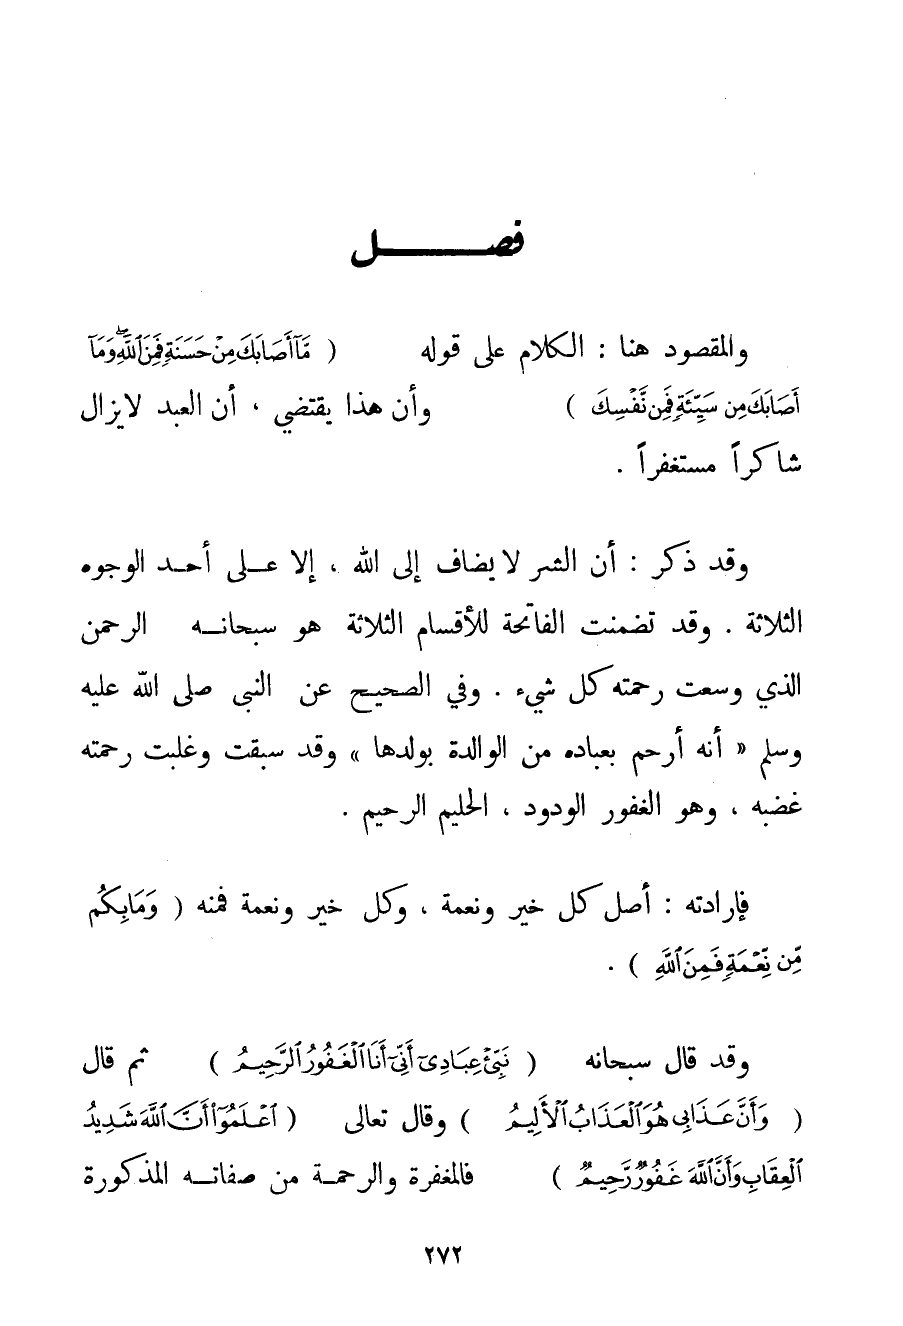 فصـــــل
والمقصود هنا : الكلام على قوله ( مَّآ أَصَابَكَ مِنْ حَسَنَةٍ فَمِنَ ٱللَّهِ ۖ وَمَآ
أَصَابَكَ مِن سَيِّئَةٍ فَمِن نَّفْسِكَ ) وأن هذا يقتضي ، أن العبد لا يزال
شاكراً مستغفراً .
وقد ذكر : أن الشر لا يضاف إلى الله ، إلا عــلى أحــد الوجوه
الثلاثة . وقد تضمنت الفاتحة للأقسام الثلاثة هو سبحانــه الرحمن
الذي وسعت رحمته كل شيء . وفي الصحيح عن النبى صلى الله عليه
وسلم « أنه أرحم بعباده من الوالدة بولدها » وقد سبقت وغلبت رحمته
غضبه ، وهو الغفور الودود ، الحليم الرحيم .
فإرادته : أصل كل خير ونعمة ، وكل خير ونعمة فمنه ( وَمَا بِكُم
مِّن نِّعْمَةٍ فَمِنَ ٱللَّهِ ) .
وقد قال سبحانه ( نَبِّئْ عِبَادِىٓ أَنِّىٓ أَنَا ٱلْغَفُورُ ٱلرَّحِيمُ ) ثم قال
( وَأَنَّ عَذَابِى هُوَ ٱلْعَذَابُ ٱلْأَلِيمُ ) وقال تعالى ( ٱعْلَمُوٓا۟ أَنَّ ٱللَّهَ شَدِيدُ
ٱلْعِقَابِ وَأَنَّ ٱللَّهَ غَفُورٌ رَّحِيمٌ ) فالمغفرة والرحمــة من صفاتــه المذكورة
٢٧٢